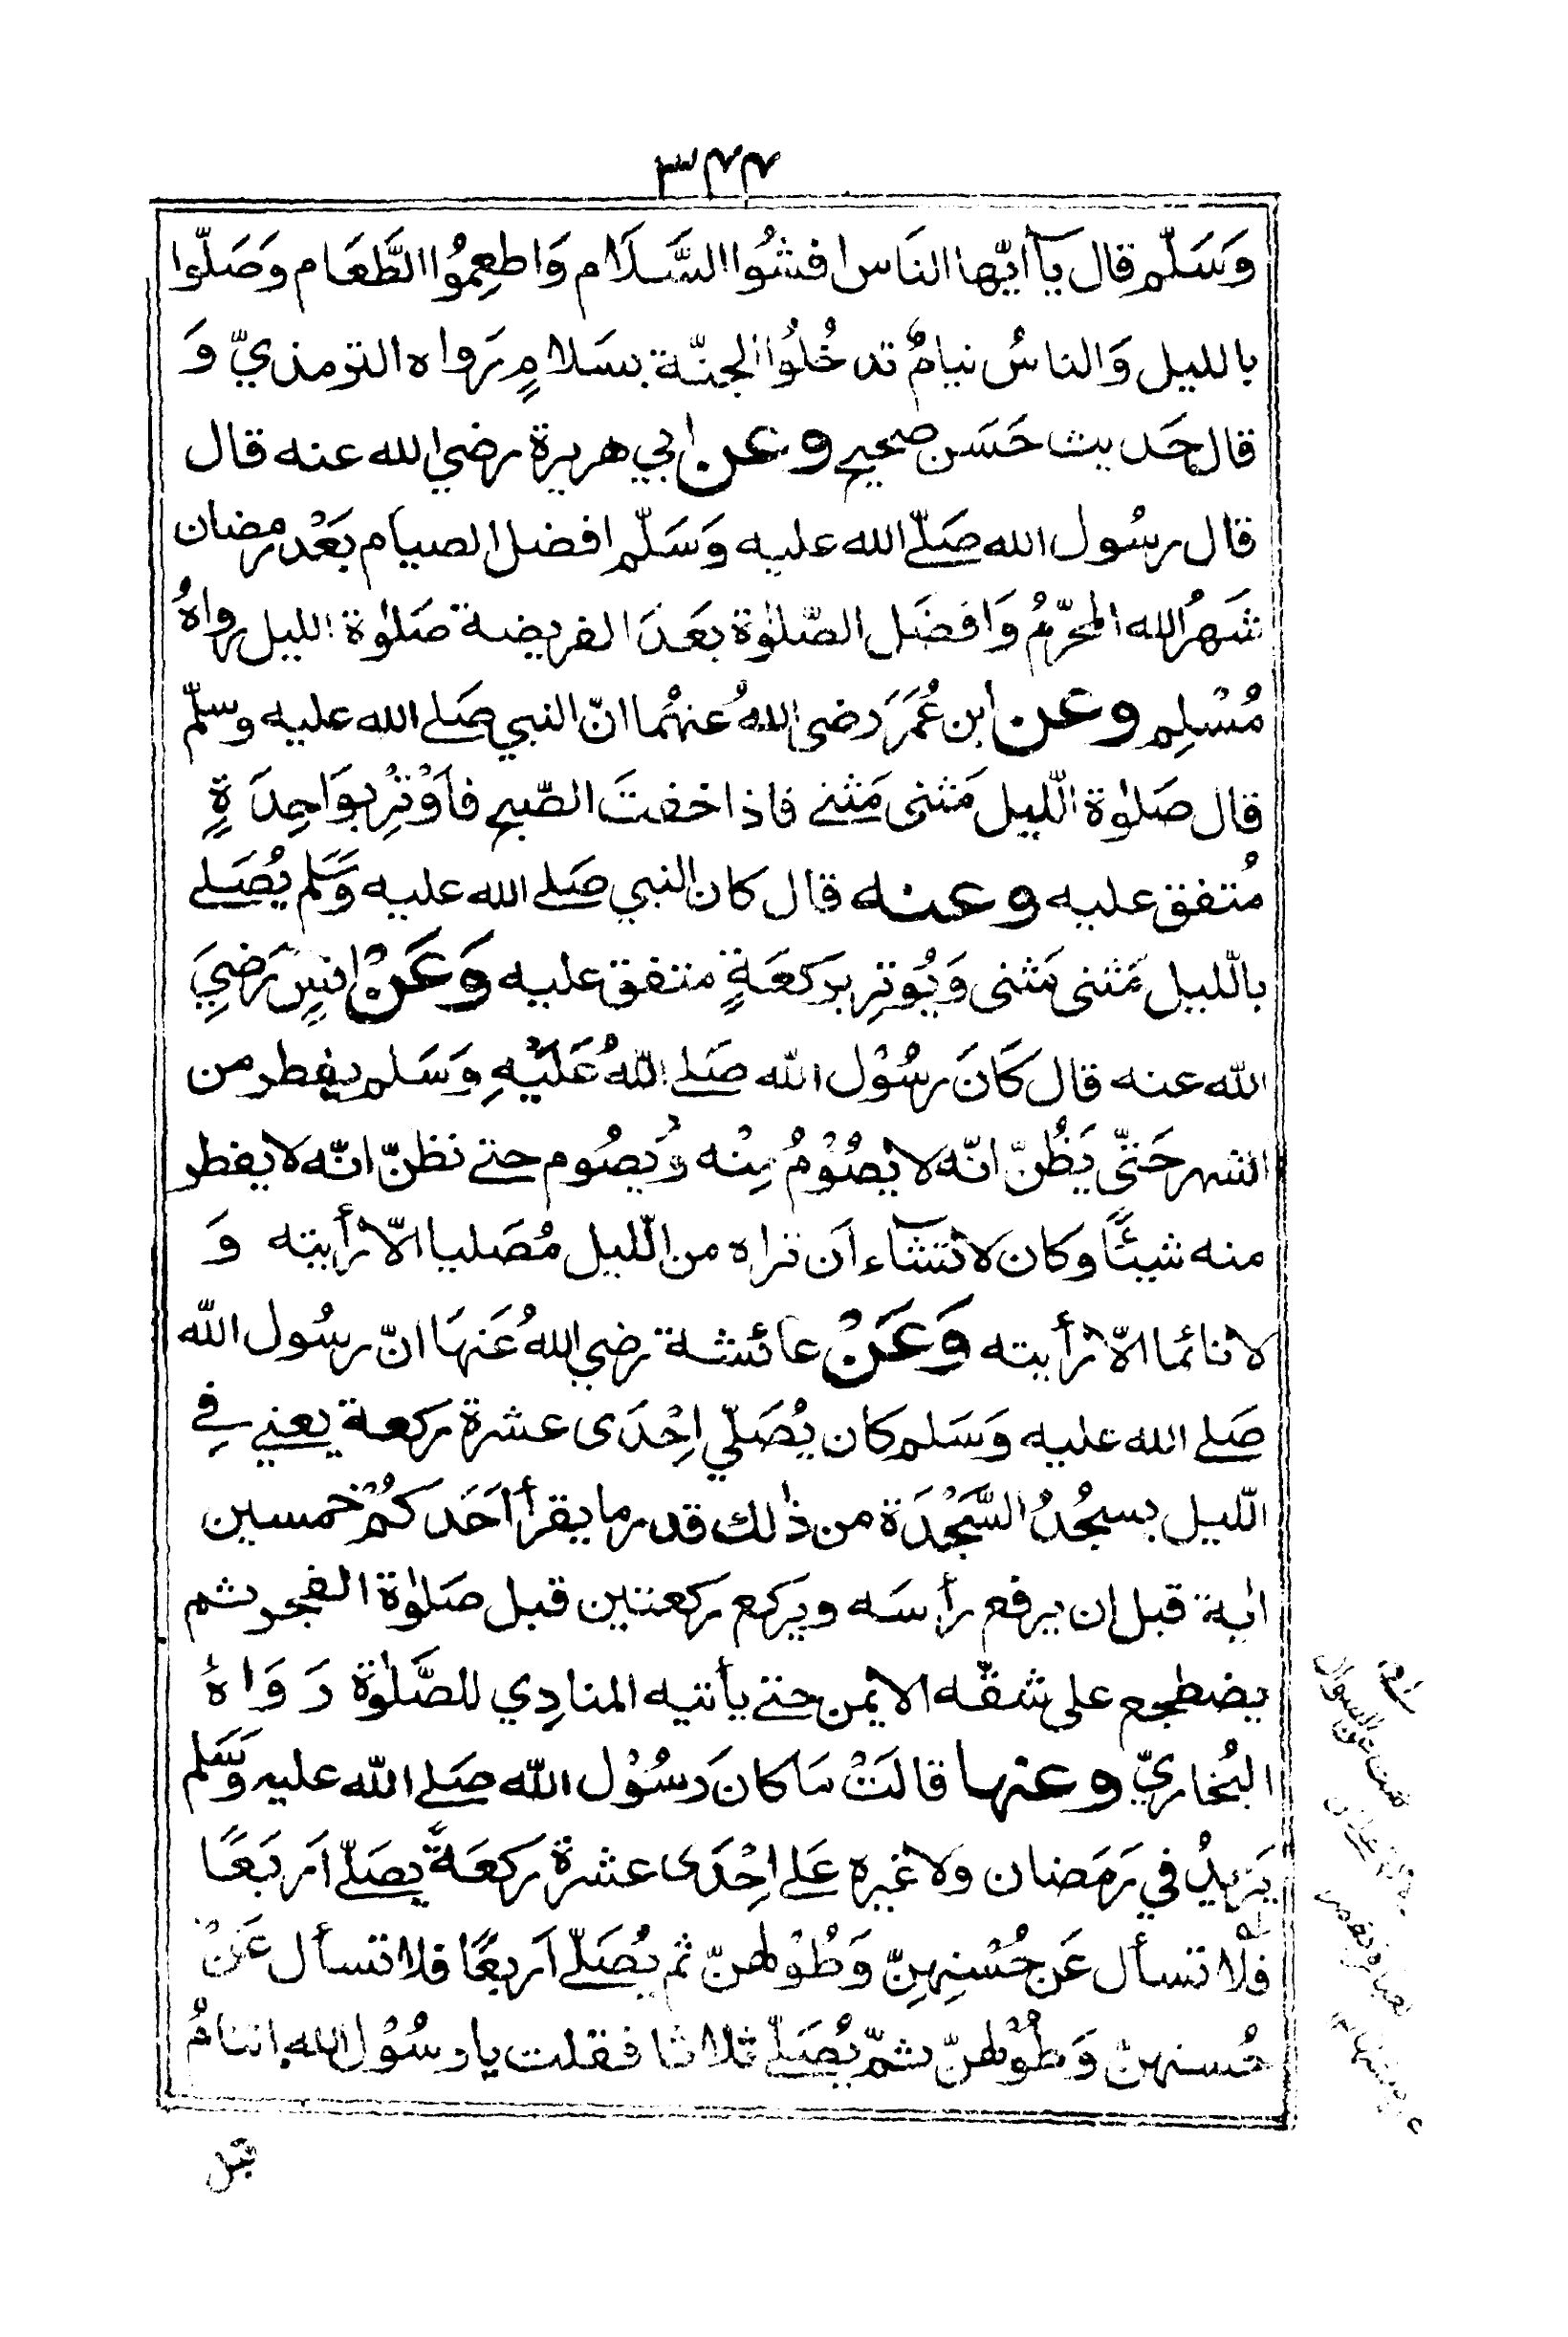 وَسَلّم قال يآ ايّها الناس افشُوا السَّلَام وَاطعِمُوا الطَّعَام وَصَلّوا
بالليل وَالناسُ نيامٌ تدخُلُوا الجنّة بسَلامٍ رَواه الترمذيّ وَ
قال حَديث حَسَن صحيح وعن ابي هريرة رضي الله عنه قال
قال رسُول الله صَلّے الله عليه وَسَلّم افضل الصيام بَعْد رمضان
شَهرُ الله المحرّمُ وَافضَل الصّلوٰة بعَدَ الفريضة صَلوٰة الليل رواهُ
مُسْلِم وعن ابن عُمَرَ رضى اللهُ عنهُما انّ النبي صَلے الله عليه وسلّم
قال صَلوٰة الّليل مَثنى مَثنے فاذا خفتَ الصّبح فاَوْتِرْ بوَاحِدَةٍ
مُتفق عليه وعنه قال كان النبي صَلے الله عليه وَسَّلم يُصَلے
بالّليل مَثنى مَثنى وَيُوتِر بركعَةٍ متفق عليه وَعَنْ انسٍ رَضِيَ
الله عنه قال كَانَ رسُوْل الله صَلے اللهُ عَلَيْهِ وَسَلم يفطر من
الشهر حَتّى يَظُنّ انّه لا يصُوْمُ مِنْه وُيصُوم حتے نظنّ انّه لا يفطر
منه شيئًا وكان لا تشآء اَن تراه من الّليل مُصَليا الّا رأيته وَ
لا نائما الّا رأيته وَعَنْ عائشة رضي اللهُ عَنهَا انّ رسُول الله
صَلے الله عليه وَسَلم كان يُصَلّي اِحْدَى عشرة ركعة يعني فِي
الّليل يسجُدُ السَّجْدَة من ذٰلك قدر ما يقرأ اَحَدكُمْ خمسين
اٰية قبل ان يرفع رأسَه ويَركع ركعتين قبل صَلوٰة الفجر ثم
يضطجع على شقّه الايمن حتے يأتيه المنادِي للصَّلوٰة رَوَاهُ
البُخاريّ وعنها قالَتْ مَا كانَ رسُوْل الله صَلے الله عليه وَسَّلم
يَزيدُ في رَمَضان ولا غيره عَلے اِحْدَى عشرة ركعَةً يصَلّے اَربَعًا
فلا تسأل عَن حُسْنِهِنّ وَطُوْلهنّ ثم يُصَلّے اَربعًا فلا تسأل عَنْ
حُسنهنّ وَطُوْلهنّ ثمّ يُصَلّے ثلاثا فقلت يا رسُوْل الله اتنامُ
قبل